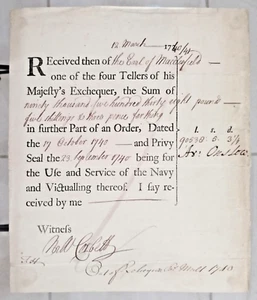 12 March — 1740/41
Received then of the Earl of Macclesfield —
one of the four Tellers of his
Majesty's Exchequer, the Sum of
ninety thousand five hundred thirty eight pounds —
five shillings & three pence farthing
in further Part of an Order, Dated
the 17 October 1740 — and Privy
Seal the 23 September 1740 being for
the Use and Service of the Navy
and Victualling thereof. I say re-
ceived by me
l. s. d.
90538: 5: 3¼
Ar: Onslow
Witness
Rob Corbett
1740